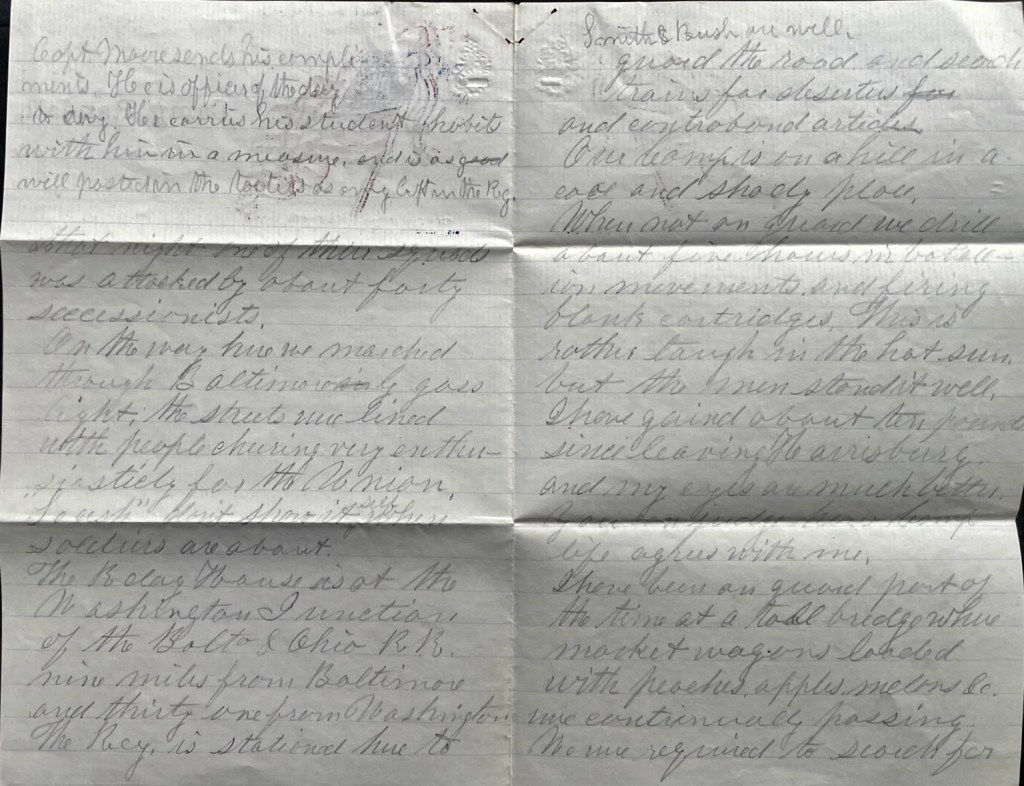 Capt. Moore sends his compli-
ments. He is officer of the day
to day. He carries his student habits
with him in a measure, and is as good
will posted in the tactics as any Capt in the Reg.
that night one of their squads
was attacked by about forty
secessionists.
On the way here we marched
through Baltimore in by gass
light; the streets were lined
with people cheering very enthu-
siasticly for the Union.
"Secesh" don't show it self when
soldiers are about.
The Relay House is at the
Washington Junction
of the Balto & Ohio R.R.
nine miles from Baltimore
and thirty one from Washington
The Reg. is stationed here to
Smith & Bush are well.
guard the road and search
trains for deserters for
and contraband articles
Our camp is on a hill in a
cool and shady place.
When not on guard we drill
about five hours in batall-
ion movements, and firing
blank cartridges. This is
rather tough in the hot sun.
but the men stand it well.
I have gaind about ten pounds
since leaving Harrisburg
and my eyes are much better.
You can judge how camp
life agrees with me.
I have been on guard part of
the time at a toll bridge where
market wagons loaded
with peaches, apples, melons &c.
were continually passing.
We were required to search for